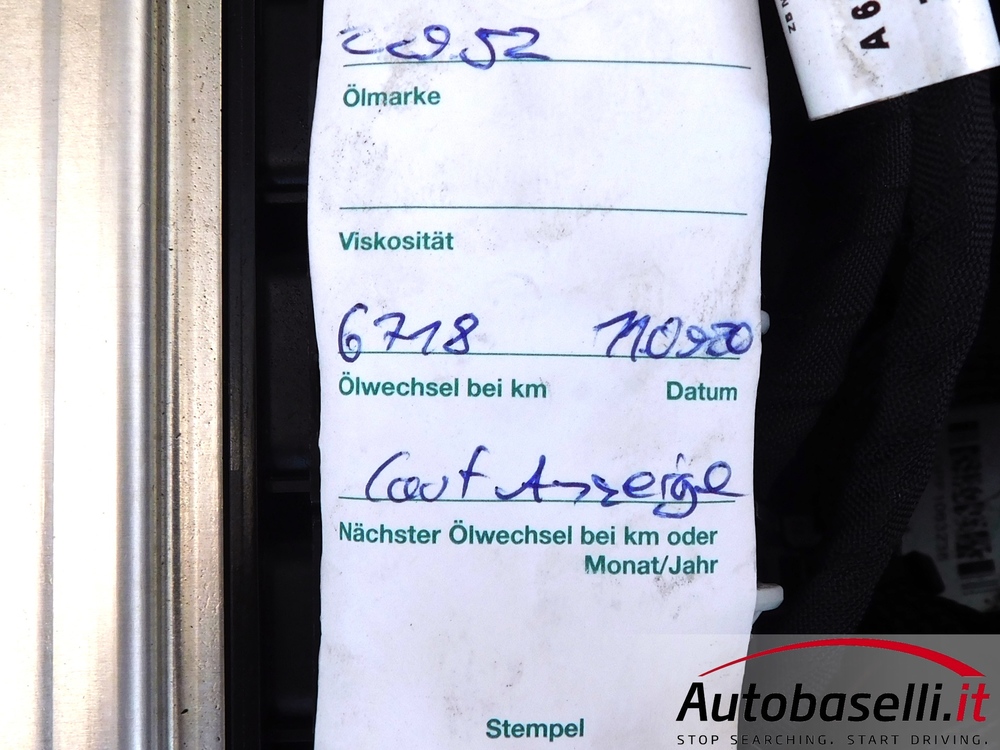 ZB N
A 6
229 52
Ölmarke
Viskosität
6718
Ölwechsel bei km Datum
Laut Anzeige
Nächster Ölwechsel bei km oder
Monat/Jahr
Stempel
Autobaselli.it
STOP SEARCHING. START DRIVING.